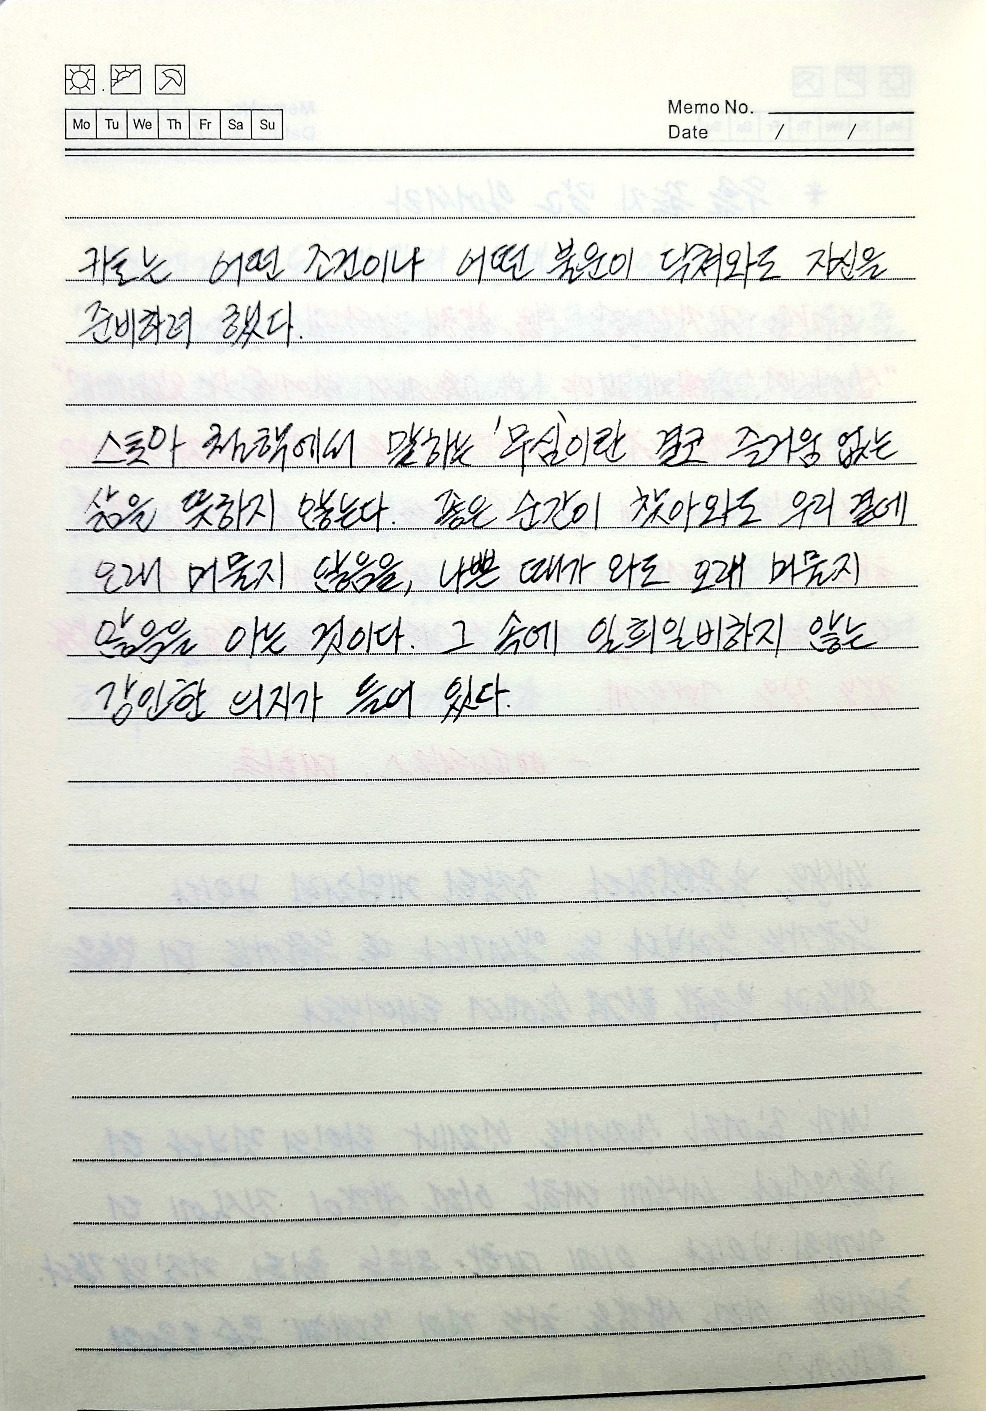 Mo Tu We Th Fr Sa Su
Memo No.
Date / /
카토는 어떤 조건이나 어떤 불운이 닥쳐와도 자신을
준비하려 했다.
스토아 철학에서 말하는 '무심'이란 결코 즐거움 없는
삶을 뜻하지 않는다. 좋은 순간이 찾아와도 우리 곁에
오래 머물지 않음을, 나쁜 때가 와도 오래 머물지
않음을 아는 것이다. 그 속에 일희일비하지 않는
강인한 의지가 들어 있다.